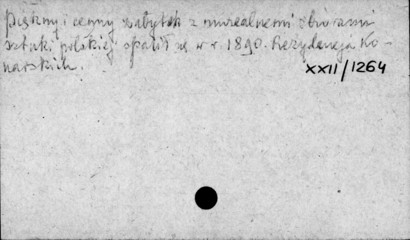 piękny i cenny zabytek z muzealnemi zbiorami
sztuki polskiej spalił się w r. 1890. Rezydencja Ko-
narskich.
XXII/1264